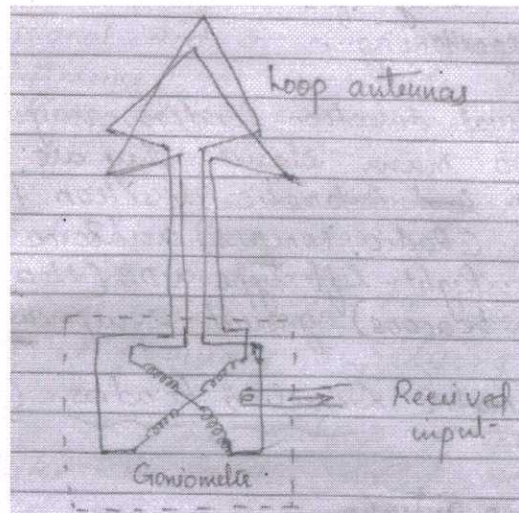 Loop antennas
Received
input
Goniometer